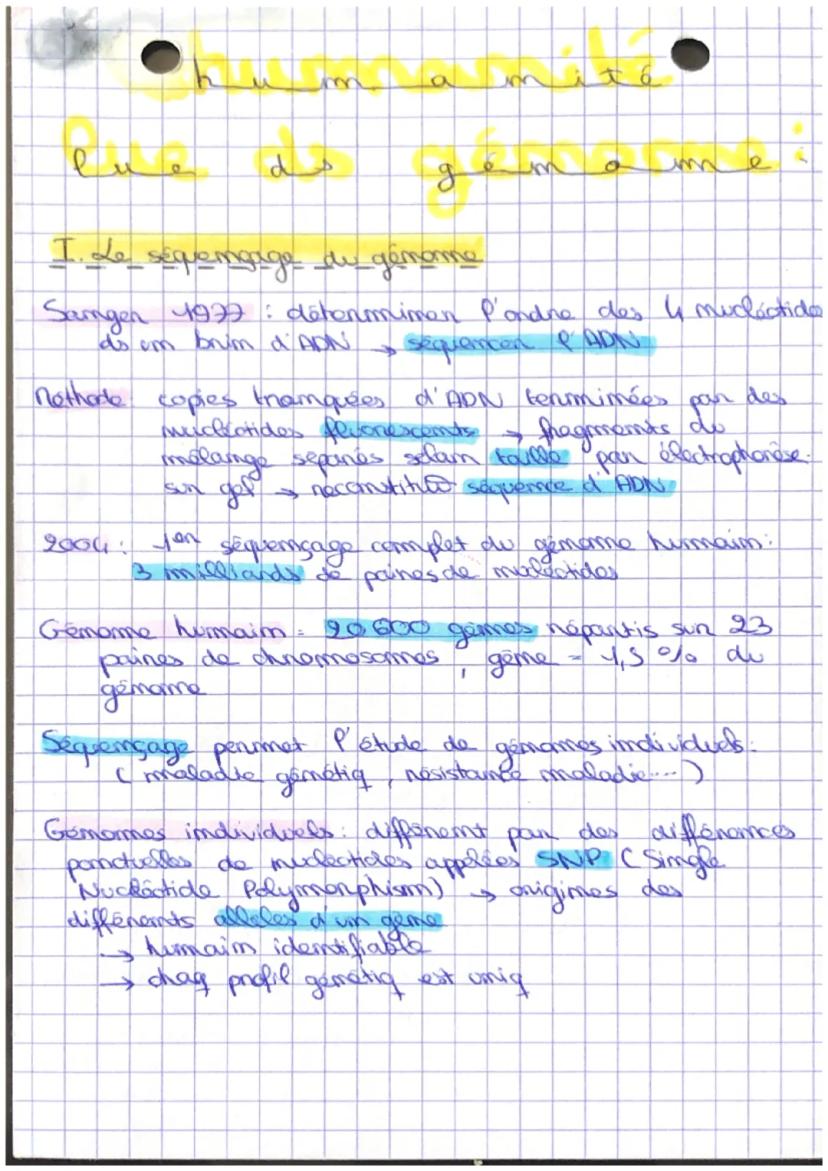 humanité
lue ds génome :
I. Le séquençage du génome
Sanger 1977 : déterminer l'ordre des 4 nucléotides
ds un brin d'ADN → séquencer l'ADN
Méthode : copies tronquées d'ADN terminées par des
nucléotides fluorescents → fragments du
mélange séparés selon taille par électrophorèse
sur gel → reconstitue séquence d'ADN
2004 : 1er séquençage complet du génome humain :
3 milliards de paires de nucléotides
Génome humain = 20 600 gènes répartis sur 23
paires de chromosomes, gène = 1,5 % du
génome
Séquençage permet l'étude de génomes individuels :
( maladie génétiq, résistance maladie ... )
Génomes individuels : diffèrent par des différences
ponctuelles de nucléotides appelées SNP (Single
Nucléotide Polymorphism) → origines des
différents allèles d'un gène
→ humain identifiable
→ chaq profil génétiq est uniq